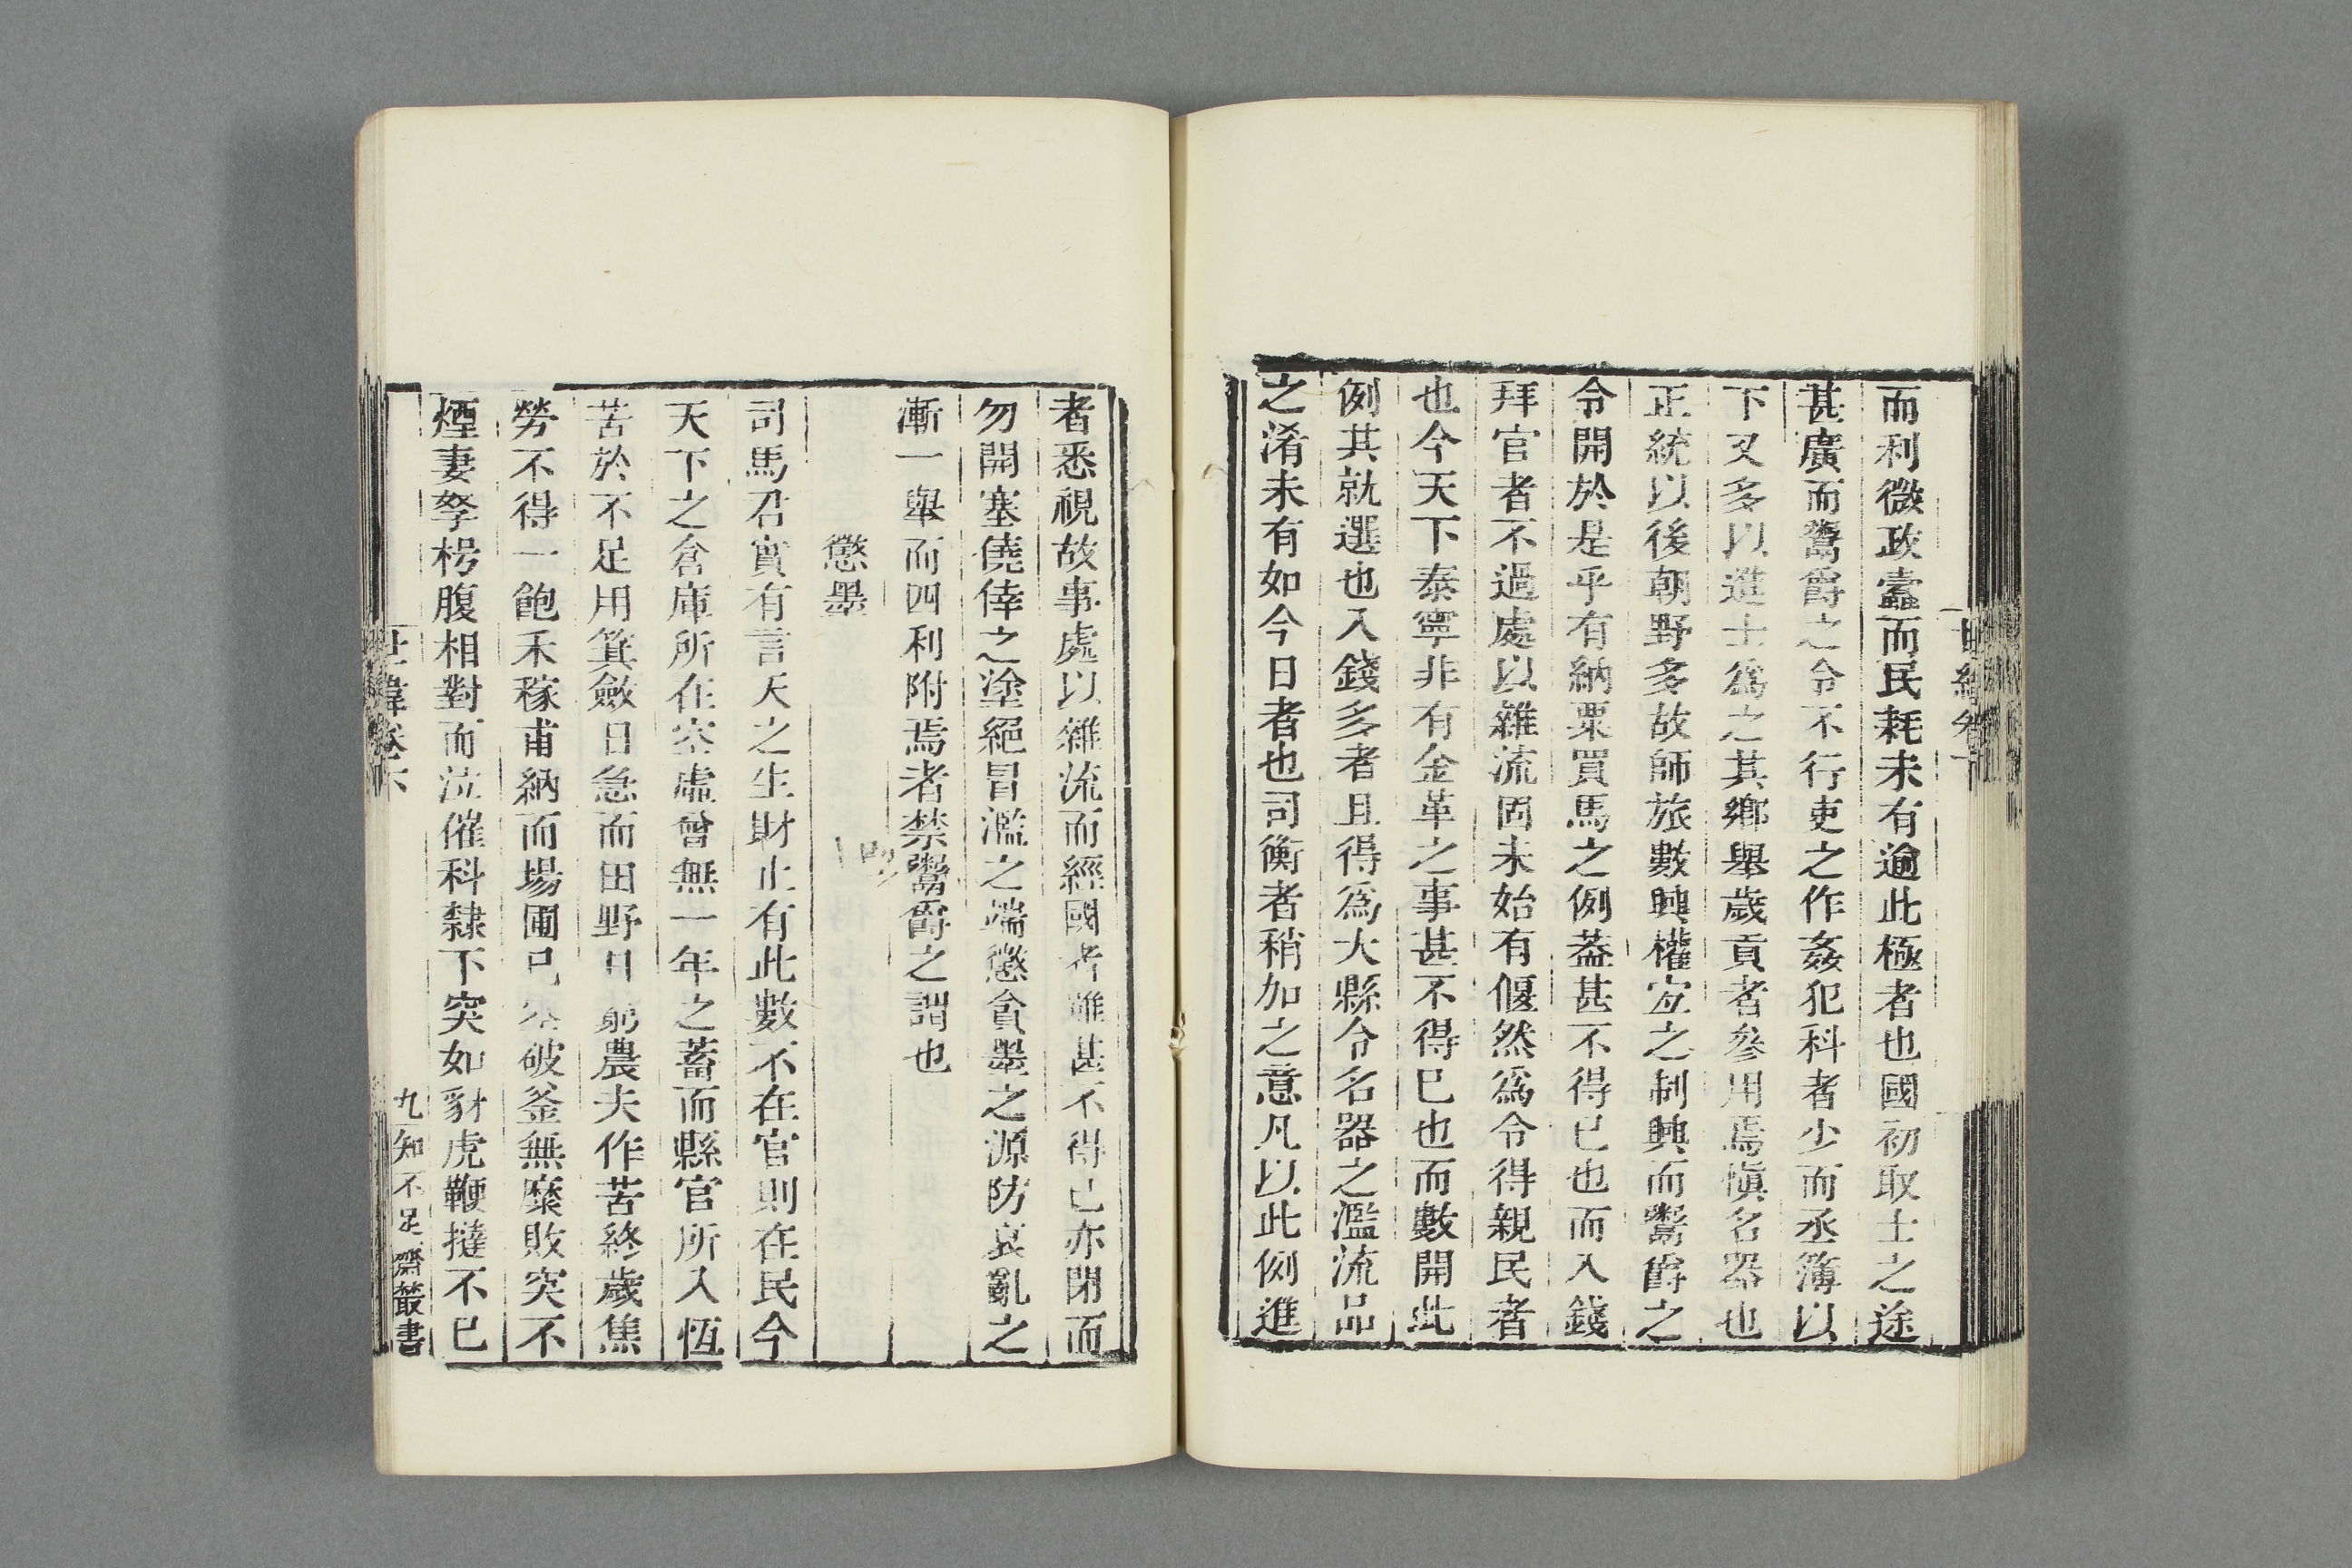 世緯卷下
而利微政蠹而民耗未有逾此極者也國初取士之途
甚廣而鬻爵之令不行吏之作姦犯科者少而丞簿以
下又多以進士爲之其鄉舉歲貢者參用焉愼名器也
正統以後朝野多故師旅數興權宜之制興而鬻爵之
令開於是乎有納粟買馬之例葢甚不得已也而入錢
拜官者不過處以雜流固未始有偃然爲令得親民者
也今天下泰寧非有金革之事甚不得已也而數開此
例其就選也入錢多者且得爲大縣令名器之濫流品
之淆未有如今日者也司衡者稍加之意凡以此例進
者悉視故事處以雜流而經國者雖甚不得已亦閉而
勿開塞僥倖之塗絕冒濫之端懲貪墨之源防衰亂之
漸一舉而四利附焉者禁鬻爵之謂也
懲墨
司馬君實有言天之生財止有此數不在官則在民今
天下之倉庫所在空虛曾無一年之蓄而縣官所入恆
苦於不足用箕斂日急而田野日窮農夫作苦終歲焦
勞不得一飽禾稼甫納而場圃已空破釜無糜敗突不
煙妻孥枵腹相對而泣催科隸下突如豺虎鞭撻不已
世緯卷下
九
知不足齋叢書